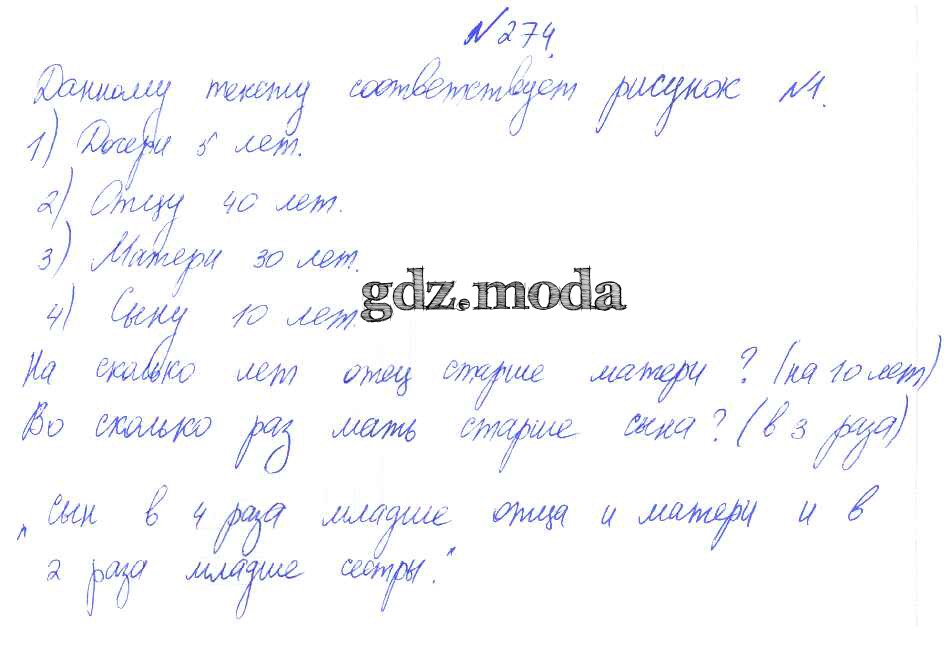 №274.
Данному тексту соответствует рисунок №1.
1) Дочери 5 лет.
2) Отцу 40 лет.
3) Матери 30 лет.
gdz.moda
4) Сыну 10 лет.
На сколько лет отец старше матери? (на 10 лет)
Во сколько раз мать старше сына? (в 3 раза)
„Сын в 4 раза младше отца и матери и в
2 раза младше сестры."